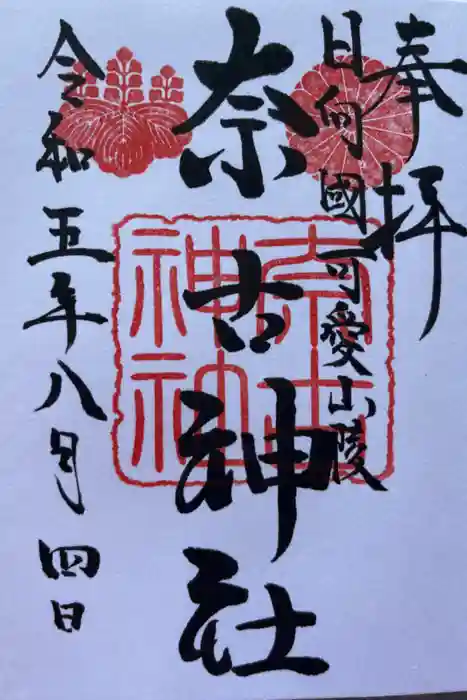 奉拝
日向國可愛山陵
奈古神社
令和五年八月四日